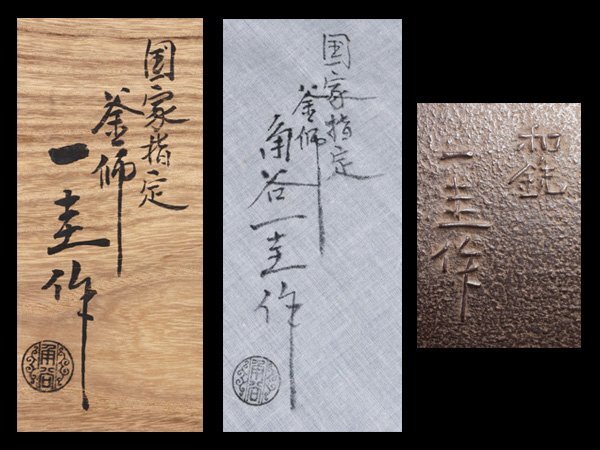 国家指定
釜師
一圭作
角谷
国家指定
釜師
角谷一圭作
角谷
和銑
一圭作